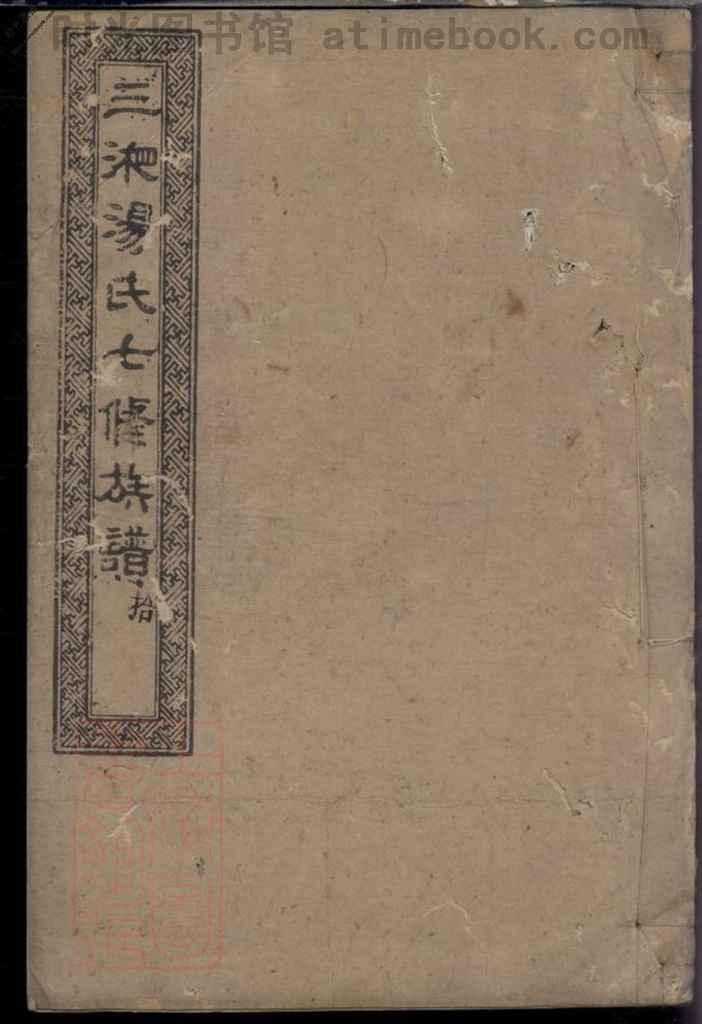 时光图书馆 atimebook.com
三湘湯氏七修族譜
拾